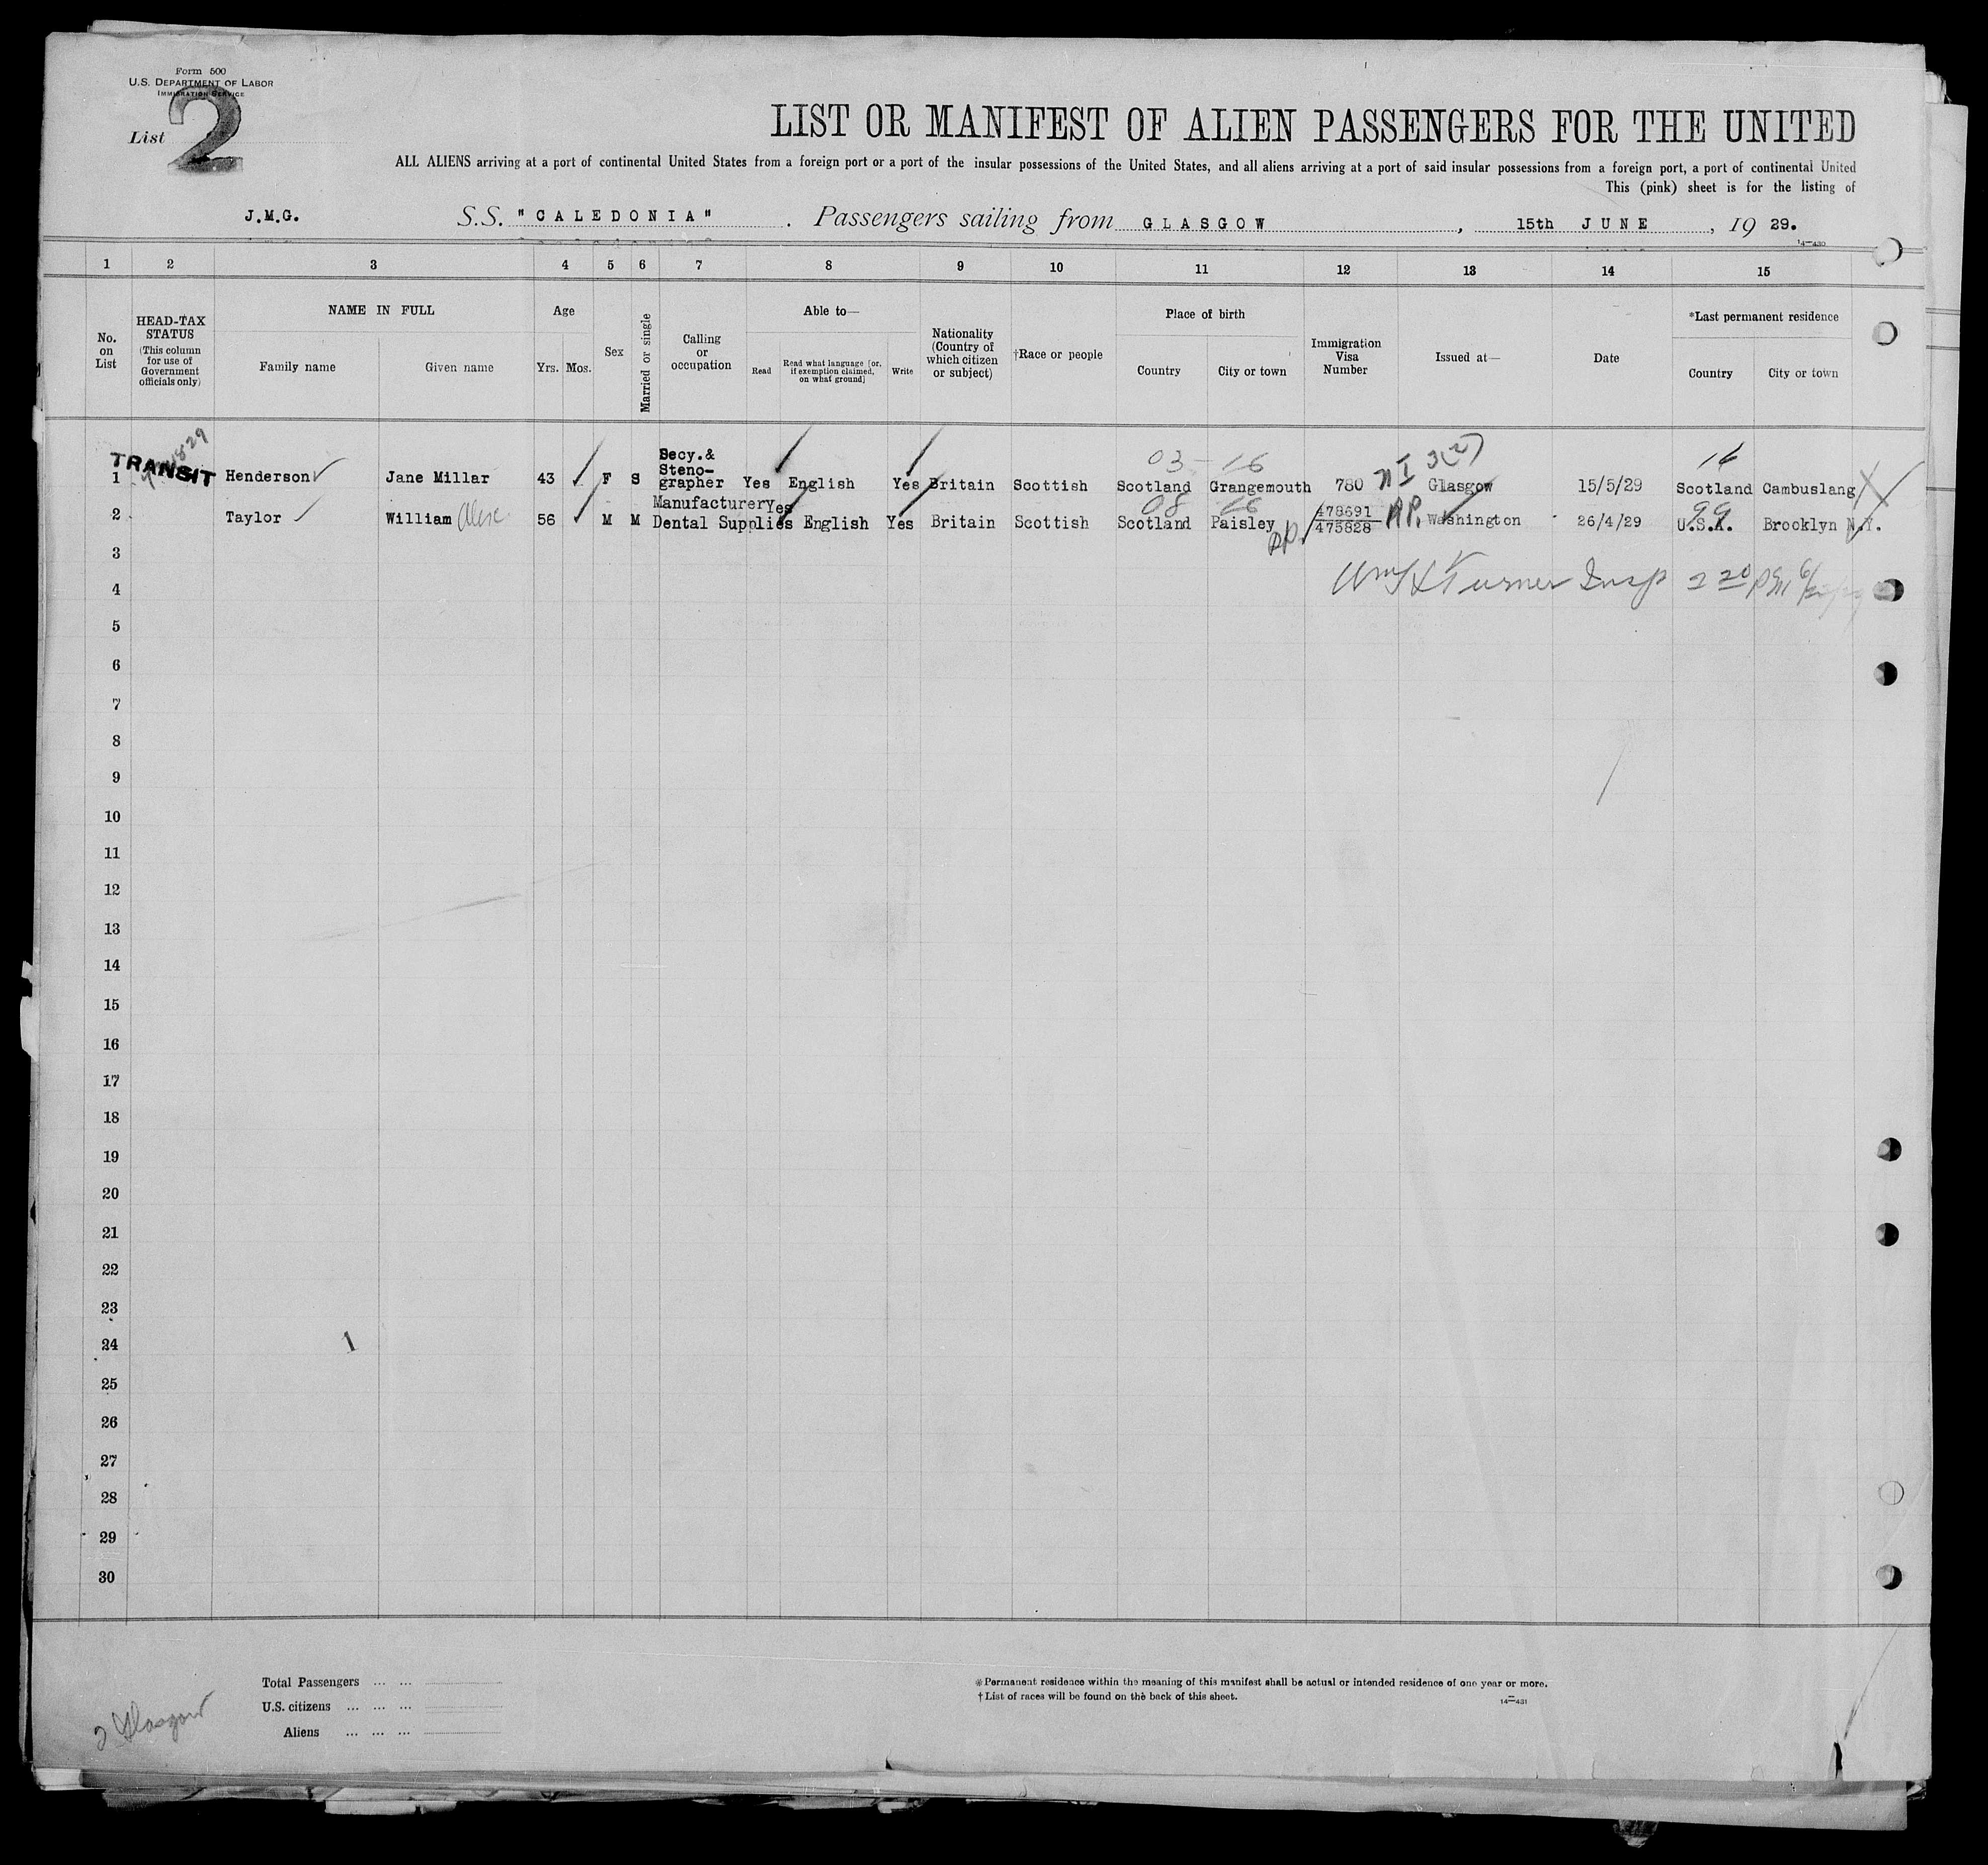 Form 500
U.S. DEPARTMENT OF LABOR
IMMIGRATION SERVICE
List 2
LIST OR MANIFEST OF ALIEN PASSENGERS FOR THE UNITED
ALL ALIENS arriving at a port of continental United States from a foreign port or a port of the insular possessions of the United States, and all aliens arriving at a port of said insular possessions from a foreign port, a port of continental United
This (pink) sheet is for the listing of
J.M.G. S.S. "CALEDONIA". Passengers sailing from GLASGOW, 15th JUNE, 19 29.
14—430
1 2 3 4 5 6 7 8 9 10 11 12 13 14 15
No. on List
HEAD-TAX STATUS (This column for use of Government officials only)
NAME IN FULL
Family name Given name
Age
Yrs. Mos.
Sex
Married or single
Calling or occupation
Able to—
Read
Read what language [or, if exemption claimed, on what ground]
Write
Nationality (Country of which citizen or subject)
†Race or people
Place of birth
Country City or town
Immigration Visa Number
Issued at—
Date
*Last permanent residence
Country City or town
TRANSIT
03 - 16 NI 3(2) 16
1 Henderson Jane Millar 43 F S Secy. & Steno-grapher Yes English Yes Britain Scottish Scotland Grangemouth 780 Glasgow 15/5/29 Scotland Cambuslang
08 99
2 Taylor William 56 M M Manufacturer Dental Supplies Yes English Yes Britain Scottish Scotland Paisley 478691 475828 Washington 26/4/29 U.S.A. Brooklyn N.Y.
3
Turner Insp 2 20 PM
4
5
6
7
8
9
10
11
12
13
14
15
16
17
18
19
20
21
22
23
24
25
26
27
28
29
30
Total Passengers ... ...
U.S. citizens ... ... ...
Aliens ... ... ...
*Permanent residence within the meaning of this manifest shall be actual or intended residence of one year or more.
†List of races will be found on the back of this sheet.
14—431
2 Glasgow